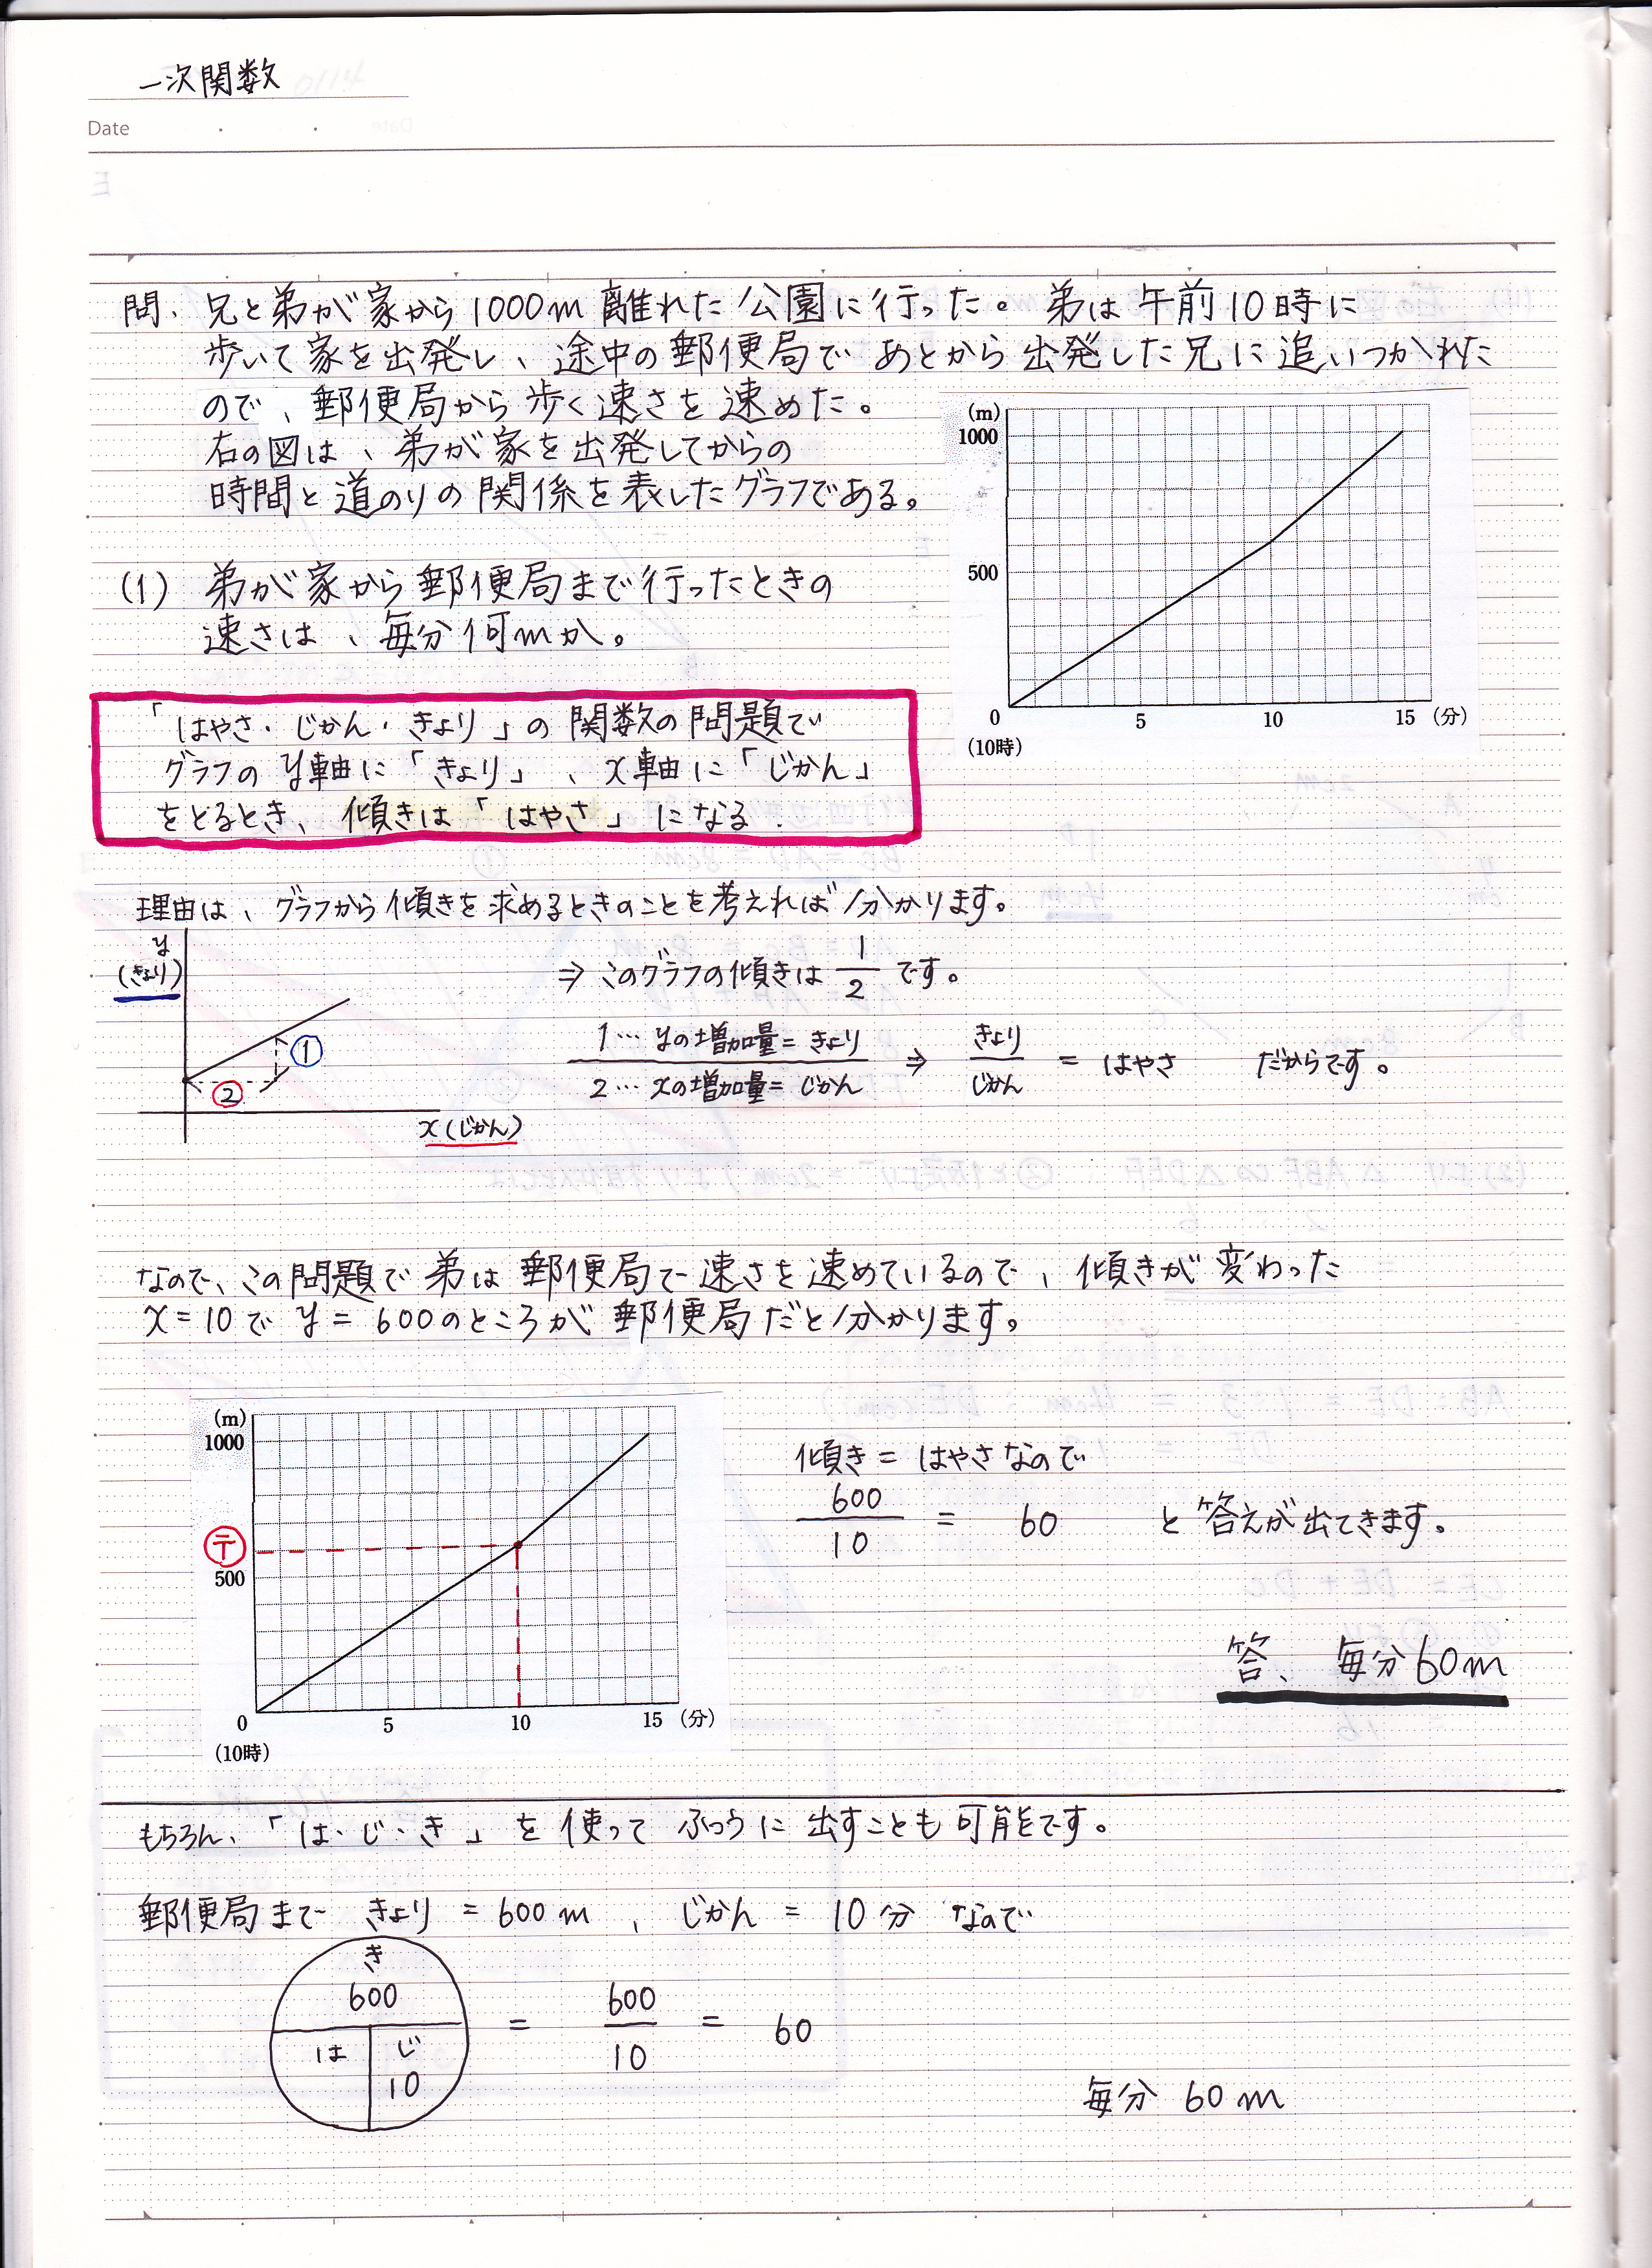 一次関数
Date
問、兄と弟が家から1000m離れた公園に行った。弟は午前10時に
歩いて家を出発し、途中の郵便局であとから出発した兄に追いつかれた
ので、郵便局から歩く速さを速めた。
右の図は、弟が家を出発してからの
時間と道のりの関係を表したグラフである。
(m)
1000
500
0 5 10 15 (分)
(10時)
(1) 弟が家から郵便局まで行ったときの
速さは、毎分何mか。
「はやさ・じかん・きょり」の関数の問題で
グラフのy軸に「きょり」、x軸に「じかん」
をとるとき、傾きは「はやさ」になる.
理由は、グラフから傾きを求めるときのことを考えれば分かります。
y
(きょり)
①
②
x(じかん)
⇒このグラフの傾きは 1/2 です。
1…yの増加量=きょり
2…xの増加量=じかん
⇒ きょり/じかん = はやさ だからです。
なので、この問題で弟は郵便局で速さを速めているので、傾きが変わった
x=10でy=600のところが郵便局だと分かります。
(m)
1000
〒
500
0 5 10 15 (分)
(10時)
傾き=はやさなので
600/10 = 60 と答えが出てきます。
答、毎分60m
もちろん、「は・じ・き」を使ってふつうに出すことも可能です。
郵便局まで きょり=600m、じかん=10分 なので
き
600
は じ
10
= 600/10 = 60
毎分 60m